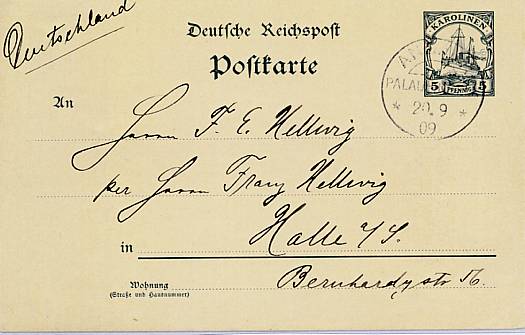 Deutschland
Deutsche Reichspost
Postkarte
KAROLINEN
5 PFENNIG 5
PALAU
* 20.9 *
09
An
Herrn F. E. Hellwig
per Herrn Franz Hellwig
in Halle a/S.
Wohnung
(Straße und Hausnummer)
Bernhardystr 56.